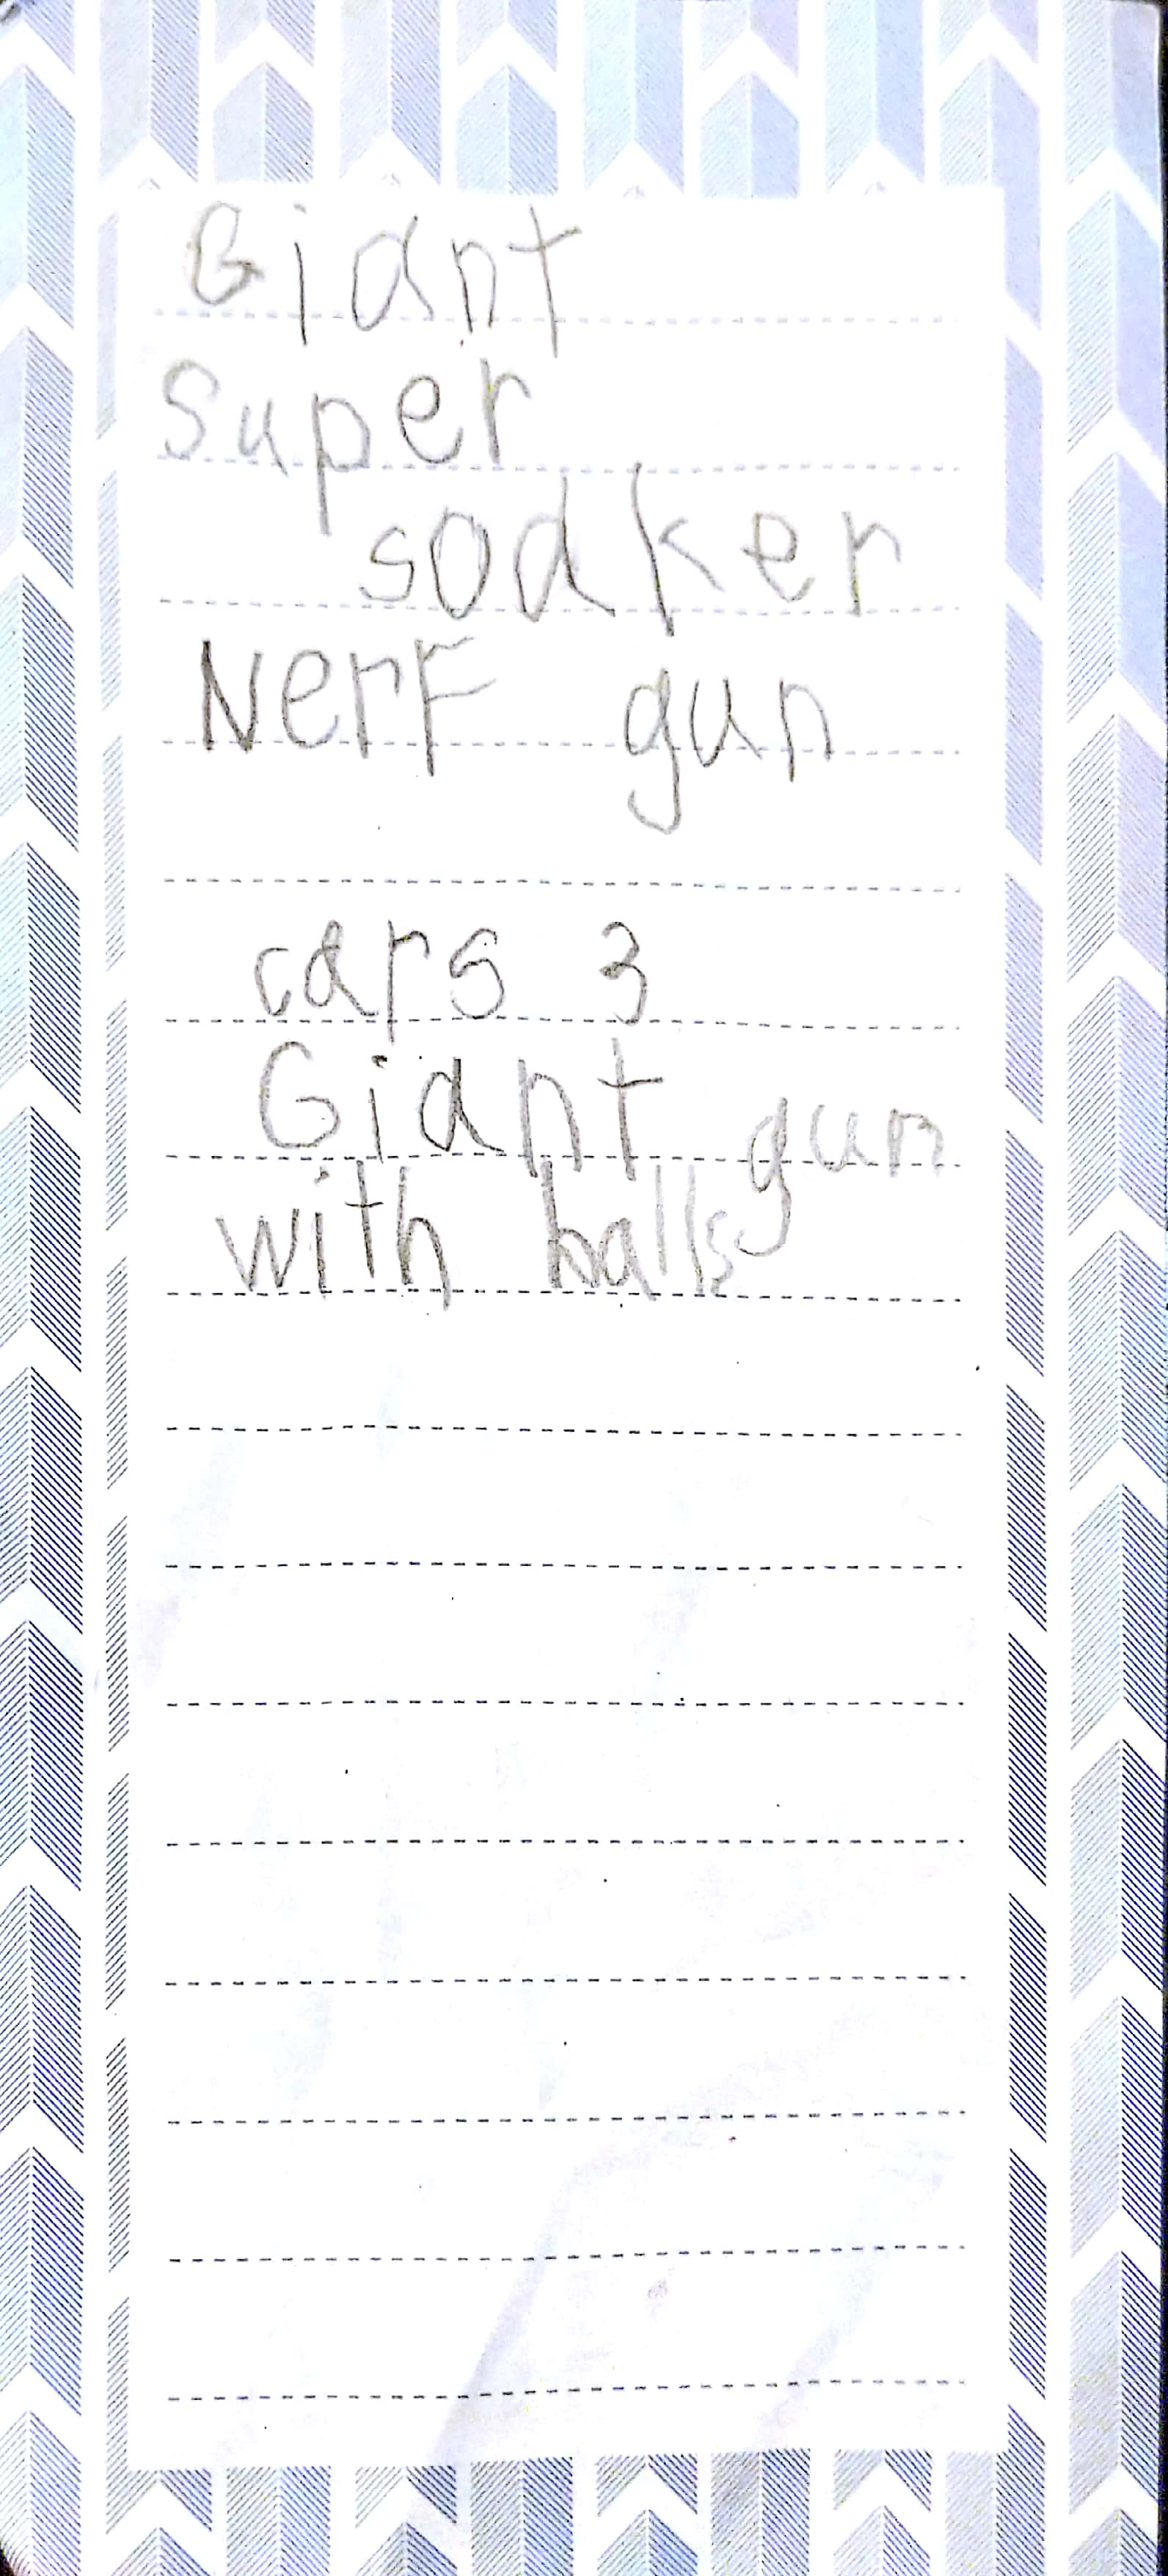 Giant
Super
soaker
NerF gun
cars 3
Giant gun
with balls